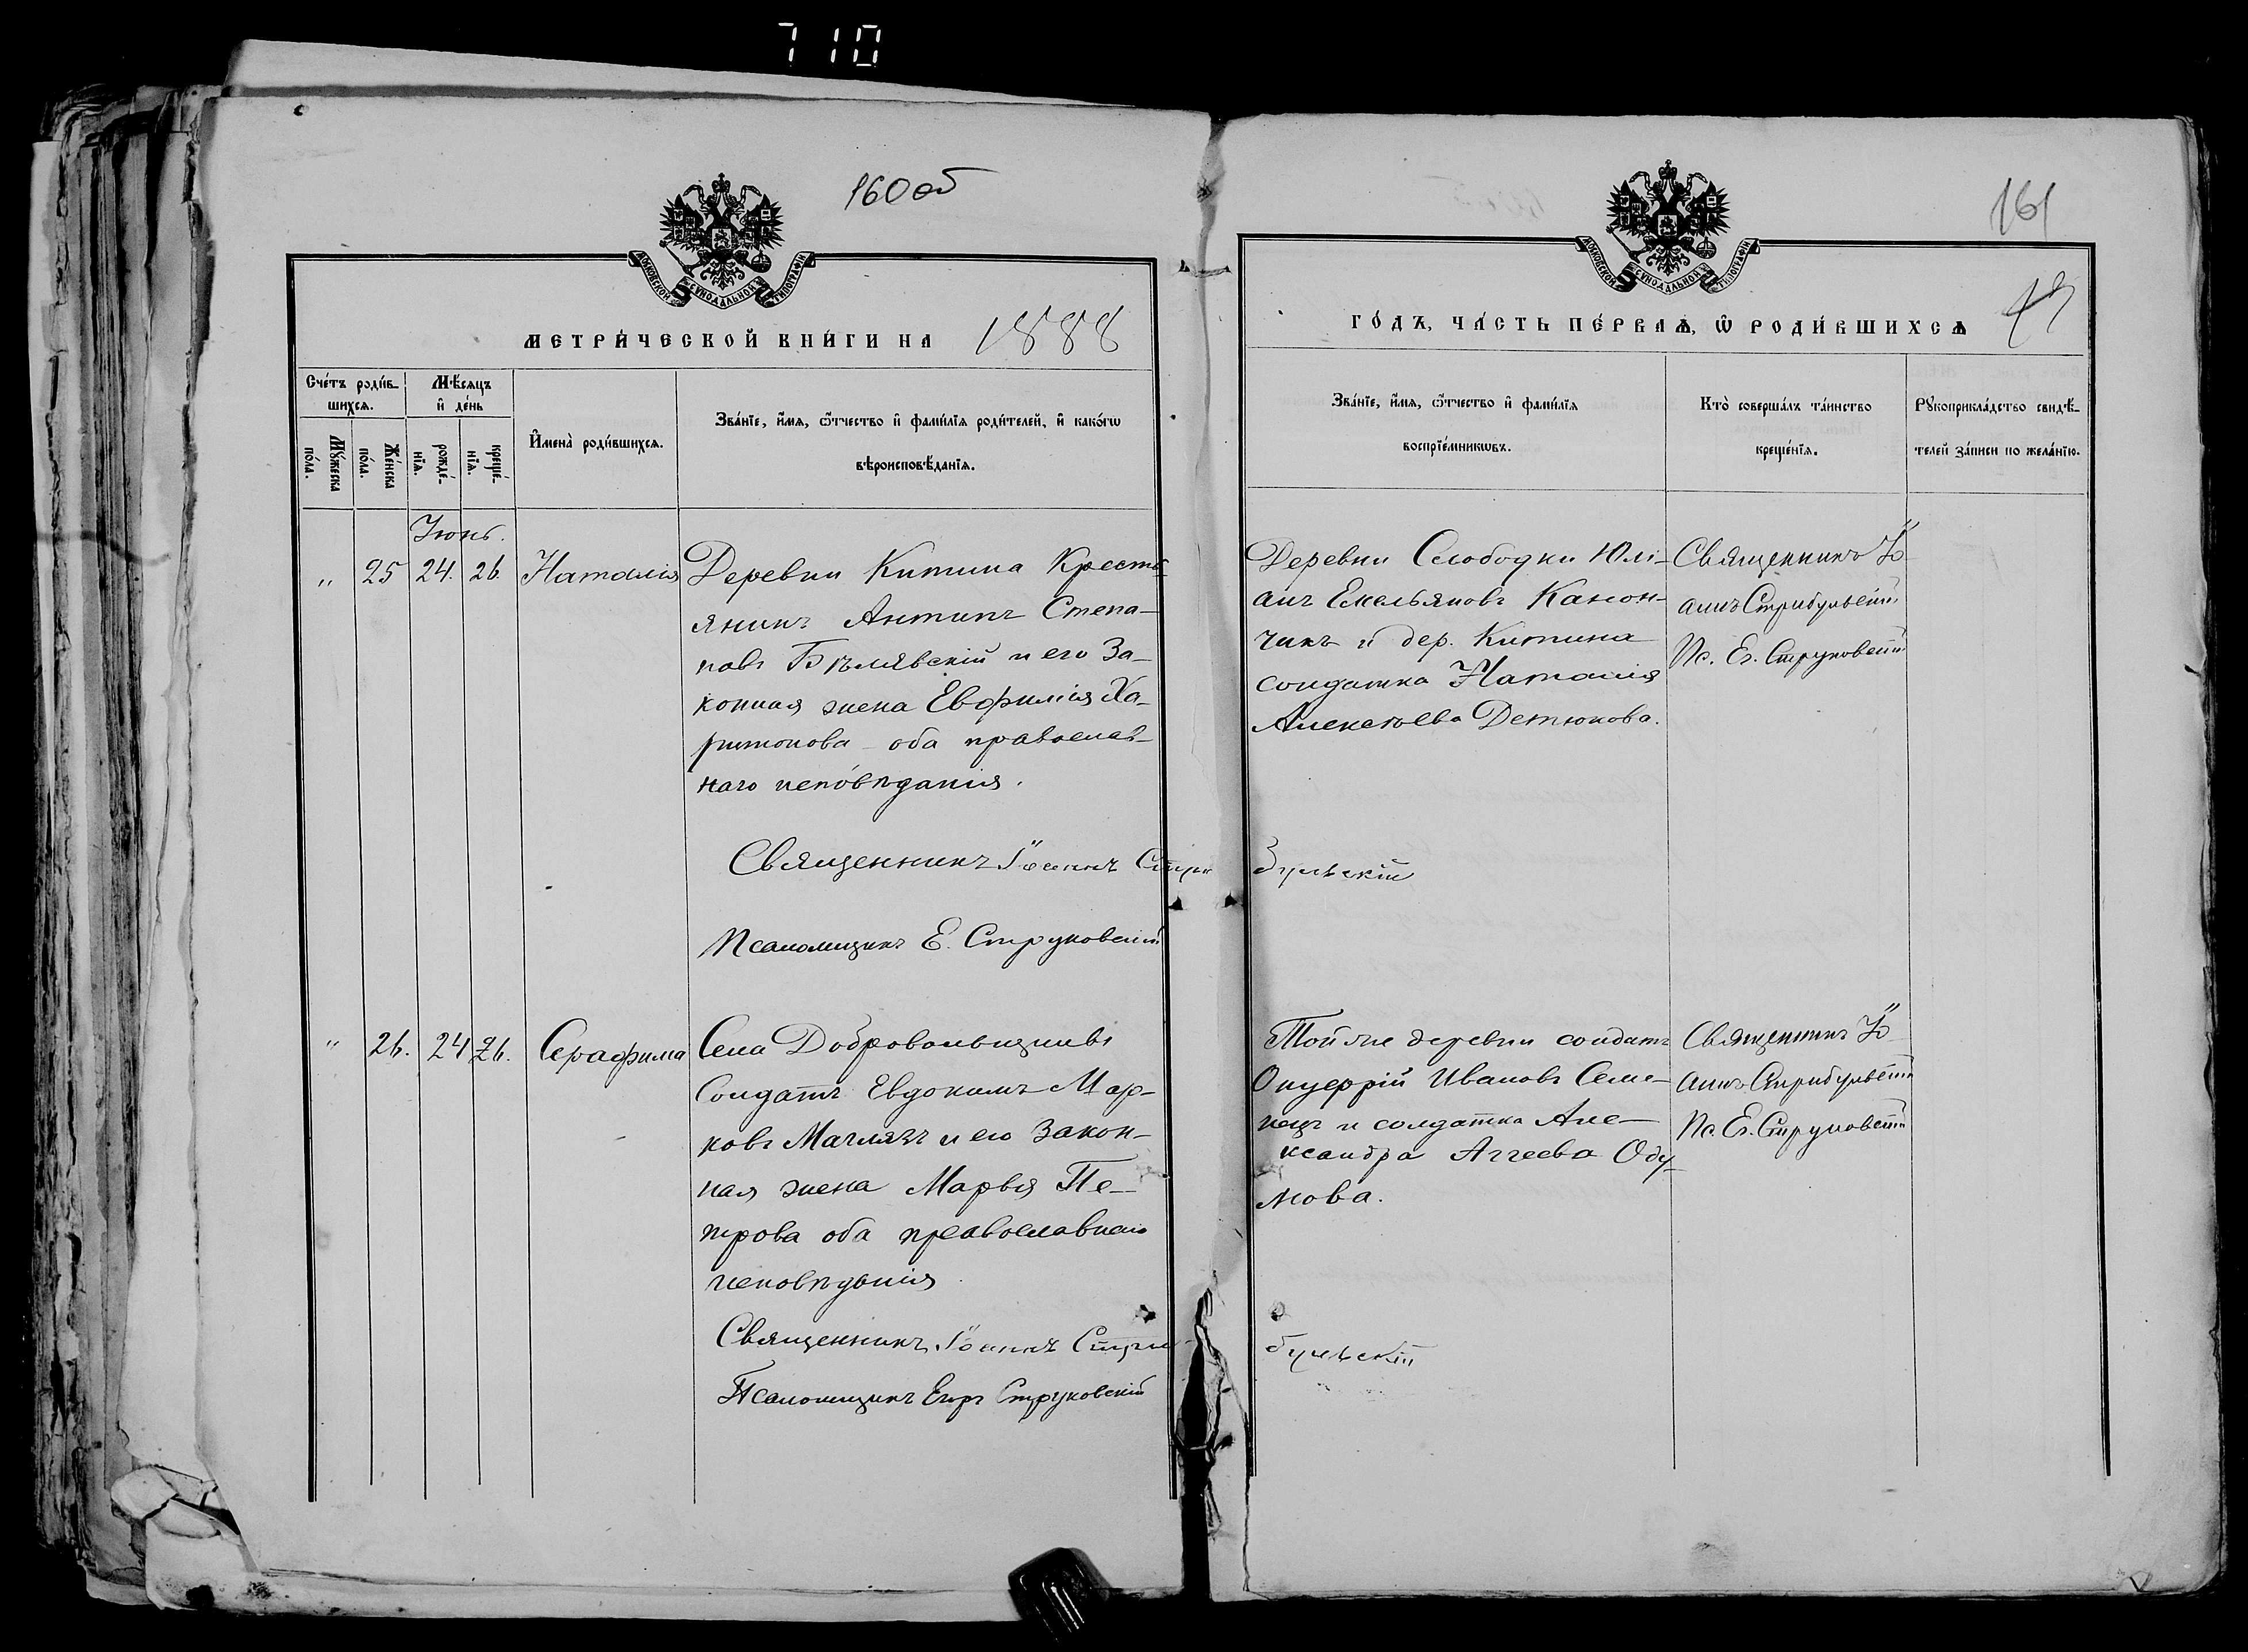 710
160 об
161
МОСКОВСКОЙ СѴНОДАЛЬНОЙ ТИПОГРАФІИ
МОСКОВСКОЙ СѴНОДАЛЬНОЙ ТИПОГРАФІИ
МЕТРИ́ЧЕСКОЙ КНИ́ГИ НА 1888
ГО́ДЪ, ЧА́СТЬ ПЕ́РВАѦ, Ѡ҆ РОДИ́ВШИХСѦ
Сче́тъ роди́в-
шихсѧ.
Мꙋ́жеска
по́ла.
Же́нска
по́ла.
Мѣ́сѧцъ
и҆ де́нь
рожде́-
нїѧ.
креще́-
нїѧ.
И҆мена̀ роди́вшихсѧ.
Зва́нїе, и҆́мѧ, ѻ҆́тчество и҆ фами́лїѧ роди́телей, и҆ како́гѡ
вѣроисповѣ́данїѧ.
Зва́нїе, и҆́мѧ, ѻ҆́тчество и҆ фами́лїѧ
воспрїе́мникѡвъ.
Кто̀ соверша́лъ та́инство
креще́нїѧ.
Рꙋкоприкла́дство свидѣ́-
телей за́писи по жела́нїю.
Іюнь.
" 25 24. 26. Наталія
Деревни Китина Кресть-
янинъ Антипъ Степа-
новъ Бѣлявскій и его За-
конная жена Евфимія Ха-
ритонова оба православ-
наго исповѣданія.
Деревни Слободки Юлі-
анъ Емельяновъ
и дер. Китина
солдатка Наталія
Алексѣева Детюкова.
Священникъ Іо-
аннъ Стрибульскій
Пс. Ег. Струковскій
Священникъ Іоаннъ Стри
бульскій
Псаломщикъ Е. Струковскій
" 26. 24 26. Серафима
Села Добровольщины
Солдатъ Евдокимъ Мар-
ковъ и его Закон-
ная жена Марья Пе-
трова оба православнаго
исповѣданія
Той же деревни солдатъ
Онуфрій Ивановъ Семе-
нецъ и солдатка Але-
ксандра Аггеева Оду-
мова.
Священникъ Іо-
аннъ Стрибульскій
Пс. Ег. Струковскій
Священникъ Іоаннъ Стри
бульскій
Псаломщикъ Егоръ Струковскій